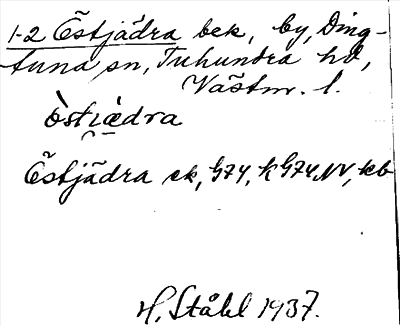 1-2 Östjädra bek, by, Ding-
tuna sn, Tuhundra hd,
Västm. l.
òsti̯æ̀dra
Östjädra ek, G74, k G74 NV, kb
H, Ståhl 1937.